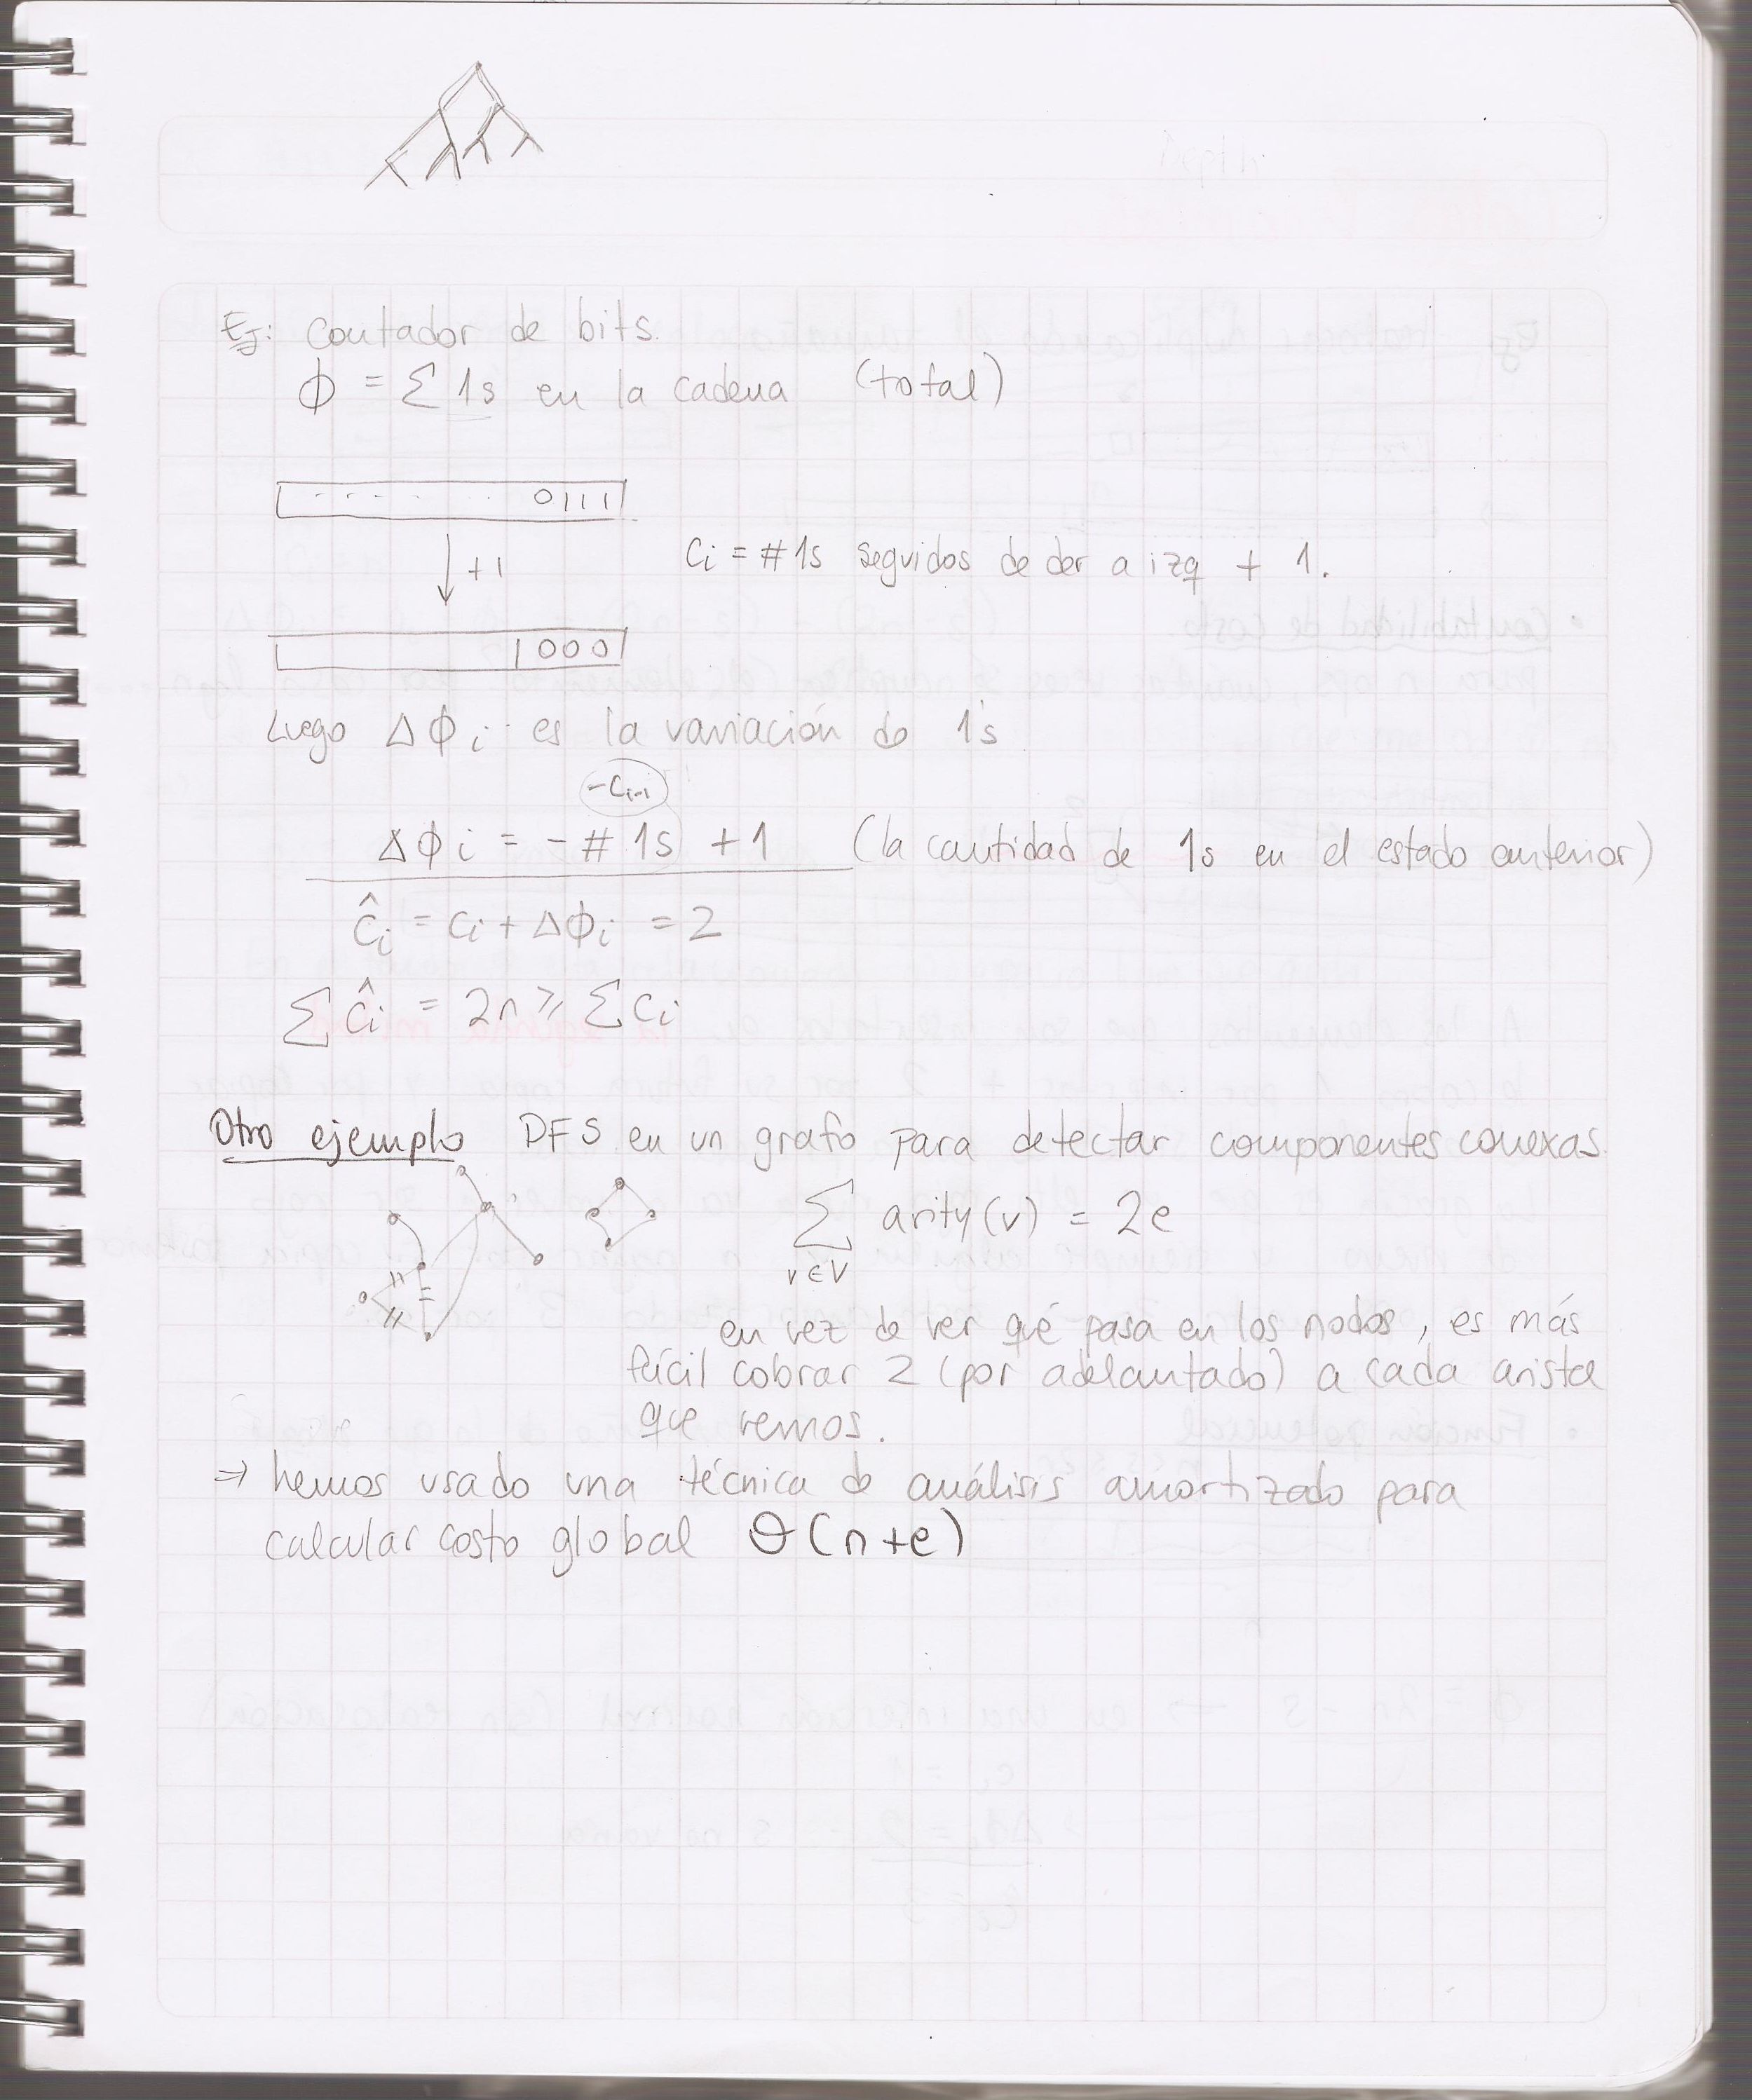 Ej: Contador de bits.
ϕ = Σ 1s en la cadena (total)
0111
+1
Ci = #1s seguidos de der a izq + 1.
1000
Luego Δϕi es la variación de 1's
-Ci-1
Δϕi = - #1s + 1 (la cantidad de 1s en el estado anterior)
ĉi = ci + Δϕi = 2
Σ ĉi = 2n ≥ Σ ci
Otro ejemplo DFS en un grafo para detectar componentes conexas.
Σ arity(v) = 2e
v ∈ V
en vez de ver qué pasa en los nodos, es más
fácil cobrar 2 (por adelantado) a cada arista
que vemos.
⇒ hemos usado una técnica de análisis amortizado para
calcular costo global Θ(n+e)